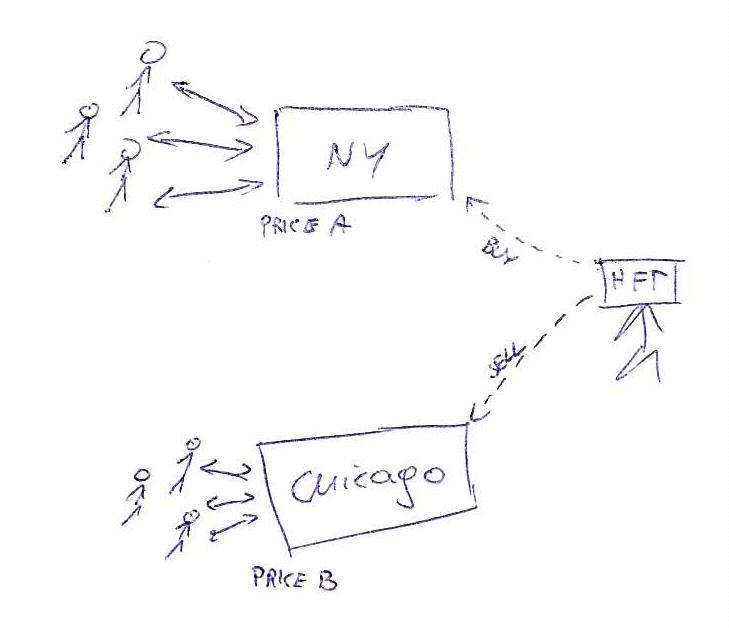 NY
PRICE A
BUY
HFT
SELL
Chicago
PRICE B